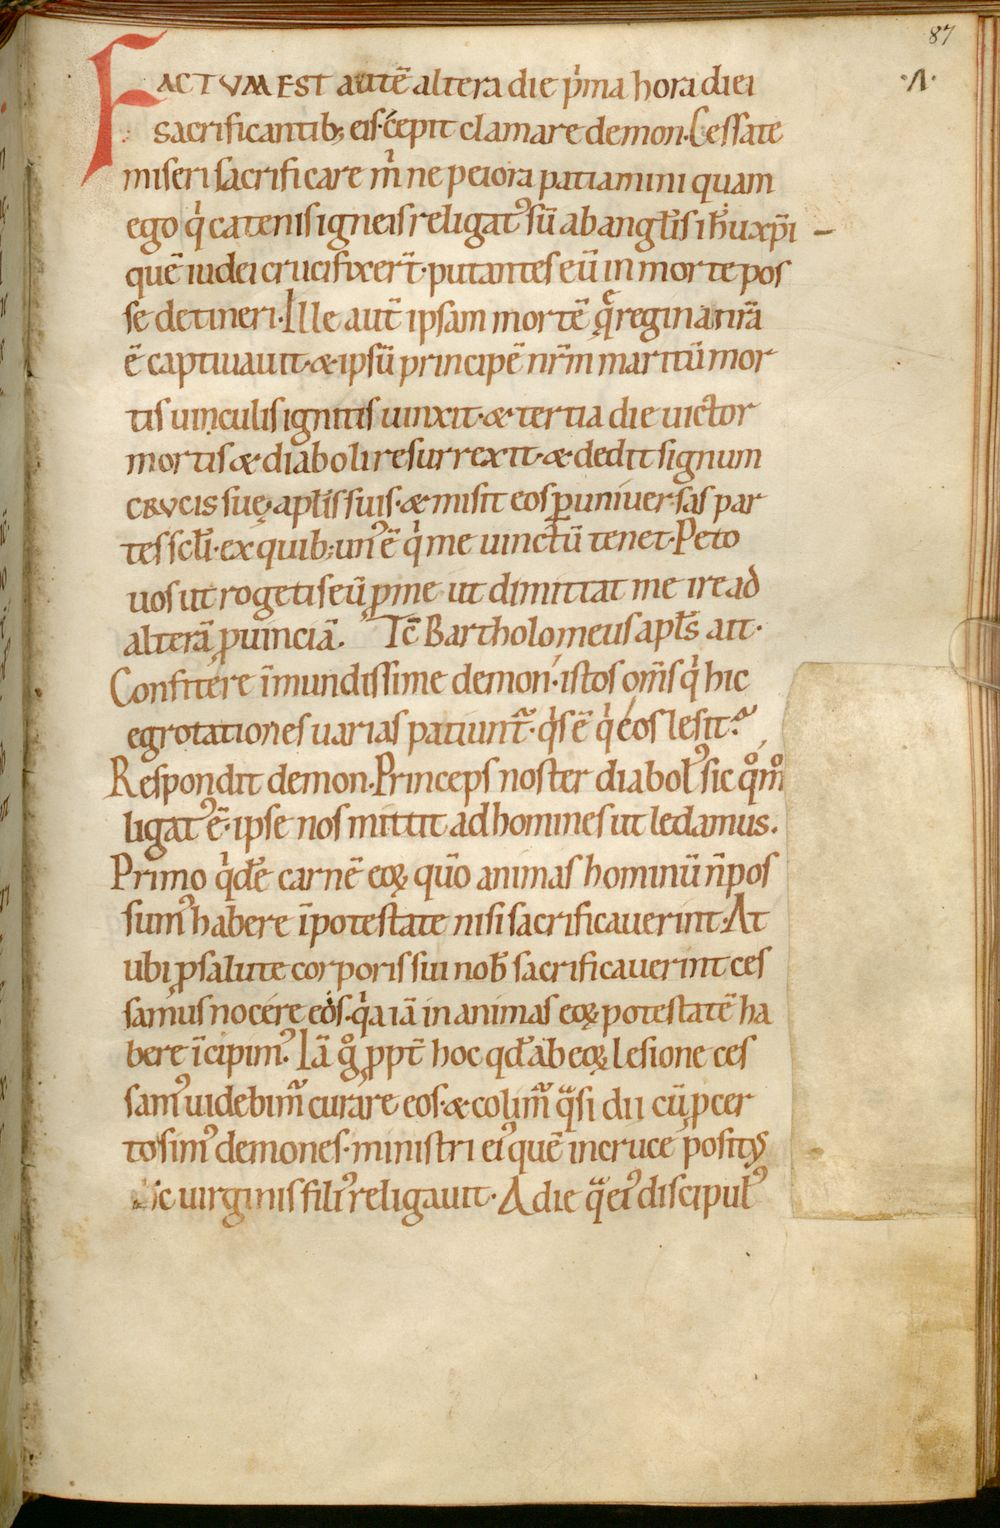 87
·Λ·
FACTVM EST autē altera die pͥma hora diei
sacrificantib; eis· cepit clamare demon· Cessate
miseri sacrificare m̄ ne peiora patiamini quam
ego qͥ catenis igneis religatꝰ sū ab angl̄is ih̄u xp̄i –
quē iudei crucifixer̄t· putantes eū in morte pos
se detineri· Ille aut̄ ipsam mortē q̄ regina nr̄a
ē captiuauit· & ipsū principē nr̄m maritū mor
tis uinculis ignitis uinxit· & tertia die uictor
mortis & diaboli resurrexit· & dedit signum
crucis suę apl̄is suis· & misit eos ꝑ uniuersas par
tes scl̄i· ex quib; unꝰ ē qͥ me uinctū tenet· Peto
uos ut rogetis eū ꝑ me ut dimittat me ire ad
alterā ꝓuinciā. Tc̄ Bartholomeus apl̄s ait·
Confitere īmundissime demon· istos om̄s qͥ hic
egrotationes uarias patiunt᷑· qͥs ē qͥ eos lesit?
Respondit demon· Princeps noster diabol̄ꝰ sic qͦmͦ
ligatꝰ ē· ipse nos mittit ad homines ut ledamus.
Primo qͥdē carnē eoꝝ quō animas hominū n̄ pos
sumꝰ habere ī potestate nisi sacrificauerint· At
ubi ꝓ salute corporis sui nob̄ sacrificauerint ces
samus nocere eos· qͥa iā in animas eoꝝ potestatē ha
bere īcipimꝰ. Iā gͦ ꝓpt̄ hoc qd̄ ab eoꝝ lesione ces
samꝰ uidebim᷑ curare eos· & colim᷑ qͣsi dii cū ꝑcer
to simꝰ demones· ministri eiꝰ quē in cruce positꝰ
ic uirginis filiꝰ religauit· A die qͣ eiꝰ discipul̄ꝰ